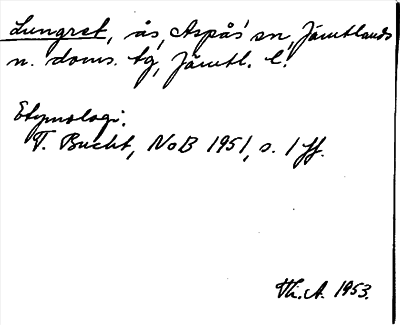 Lungret, ås, Aspås' sn, Jämtlands
n. doms. tg, Jämtl. l.
Etymologi.
T. Bucht, NoB 1951, s. 1 ff.
Th.A. 1953.